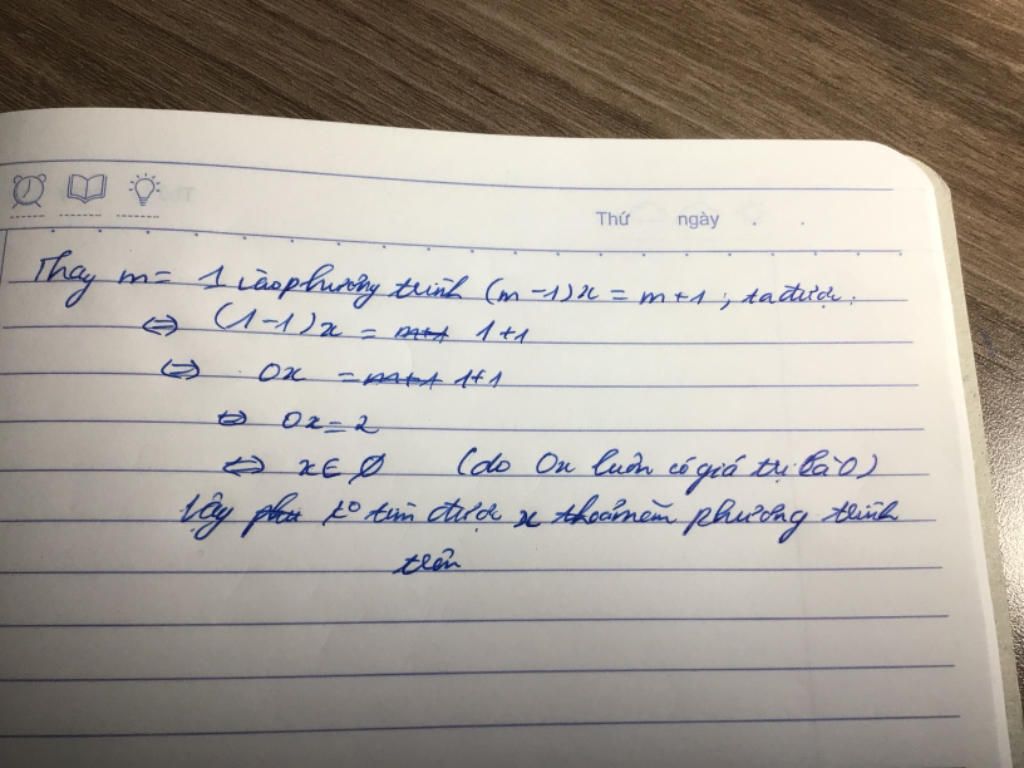 Thứ ngày . .
Thay m = 1 vào phương trình (m-1)x = m+1, ta được:
⇔ (1-1)x = m+1 1+1
⇔ 0x = m+1 1+1
⇔ 0x = 2
⇔ x ∈ ∅ (do 0x luôn có giá trị là 0)
Vậy k° tìm được x thoả mãn phương trình
trên